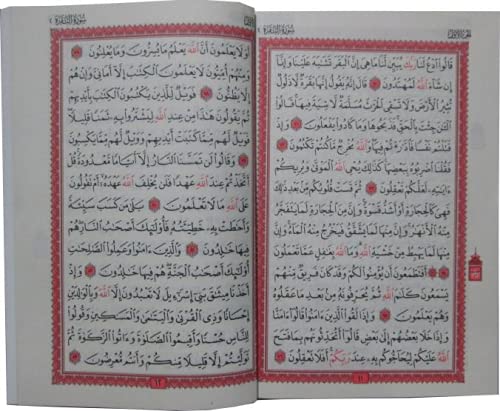 الجزء الأول سورة البقرة ٢
قَالُوا۟ ٱدْعُ لَنَا رَبَّكَ يُبَيِّن لَّنَا مَا هِىَ إِنَّ ٱلْبَقَرَ تَشَٰبَهَ عَلَيْنَا وَإِنَّآ
إِن شَآءَ ٱللَّهُ لَمُهْتَدُونَ ٧٠ قَالَ إِنَّهُۥ يَقُولُ إِنَّهَا بَقَرَةٌ لَّا ذَلُولٌ
تُثِيرُ ٱلْأَرْضَ وَلَا تَسْقِى ٱلْحَرْثَ مُسَلَّمَةٌ لَّا شِيَةَ فِيهَا قَالُوا۟
ٱلْـَٰٔنَ جِئْتَ بِٱلْحَقِّ فَذَبَحُوهَا وَمَا كَادُوا۟ يَفْعَلُونَ ٧١ وَإِذْ
قَتَلْتُمْ نَفْسًا فَٱدَّٰرَْٰٔتُمْ فِيهَا وَٱللَّهُ مُخْرِجٌ مَّا كُنتُمْ تَكْتُمُونَ ٧٢
فَقُلْنَا ٱضْرِبُوهُ بِبَعْضِهَا كَذَٰلِكَ يُحْىِ ٱللَّهُ ٱلْمَوْتَىٰ وَيُرِيكُمْ
ءَايَٰتِهِۦ لَعَلَّكُمْ تَعْقِلُونَ ٧٣ ثُمَّ قَسَتْ قُلُوبُكُم مِّنۢ بَعْدِ ذَٰلِكَ
فَهِىَ كَٱلْحِجَارَةِ أَوْ أَشَدُّ قَسْوَةً وَإِنَّ مِنَ ٱلْحِجَارَةِ لَمَا يَتَفَجَّرُ
مِنْهُ ٱلْأَنْهَٰرُ وَإِنَّ مِنْهَا لَمَا يَشَّقَّقُ فَيَخْرُجُ مِنْهُ ٱلْمَآءُ وَإِنَّ
مِنْهَا لَمَا يَهْبِطُ مِنْ خَشْيَةِ ٱللَّهِ وَمَا ٱللَّهُ بِغَٰفِلٍ عَمَّا تَعْمَلُونَ
٧٤ أَفَتَطْمَعُونَ أَن يُؤْمِنُوا۟ لَكُمْ وَقَدْ كَانَ فَرِيقٌ مِّنْهُمْ
يَسْمَعُونَ كَلَٰمَ ٱللَّهِ ثُمَّ يُحَرِّفُونَهُۥ مِنۢ بَعْدِ مَا عَقَلُوهُ
وَهُمْ يَعْلَمُونَ ٧٥ وَإِذَا لَقُوا۟ ٱلَّذِينَ ءَامَنُوا۟ قَالُوٓا۟ ءَامَنَّا
وَإِذَا خَلَا بَعْضُهُمْ إِلَىٰ بَعْضٍ قَالُوٓا۟ أَتُحَدِّثُونَهُم بِمَا فَتَحَ
ٱللَّهُ عَلَيْكُمْ لِيُحَآجُّوكُم بِهِۦ عِندَ رَبِّكُمْ أَفَلَا تَعْقِلُونَ ٧٦
١١
سورة البقرة ٢
أَوَلَا يَعْلَمُونَ أَنَّ ٱللَّهَ يَعْلَمُ مَا يُسِرُّونَ وَمَا يُعْلِنُونَ ٧٧
وَمِنْهُمْ أُمِّيُّونَ لَا يَعْلَمُونَ ٱلْكِتَٰبَ إِلَّآ أَمَانِىَّ وَإِنْ هُمْ
إِلَّا يَظُنُّونَ ٧٨ فَوَيْلٌ لِّلَّذِينَ يَكْتُبُونَ ٱلْكِتَٰبَ بِأَيْدِيهِمْ
ثُمَّ يَقُولُونَ هَٰذَا مِنْ عِندِ ٱللَّهِ لِيَشْتَرُوا۟ بِهِۦ ثَمَنًا قَلِيلًا
فَوَيْلٌ لَّهُم مِّمَّا كَتَبَتْ أَيْدِيهِمْ وَوَيْلٌ لَّهُم مِّمَّا يَكْسِبُونَ
٧٩ وَقَالُوا۟ لَن تَمَسَّنَا ٱلنَّارُ إِلَّآ أَيَّامًا مَّعْدُودَةً قُلْ
أَتَّخَذْتُمْ عِندَ ٱللَّهِ عَهْدًا فَلَن يُخْلِفَ ٱللَّهُ عَهْدَهُۥٓ أَمْ تَقُولُونَ
عَلَى ٱللَّهِ مَا لَا تَعْلَمُونَ ٨٠ بَلَىٰ مَن كَسَبَ سَيِّئَةً
وَأَحَٰطَتْ بِهِۦ خَطِيٓـَٔتُهُۥ فَأُو۟لَٰٓئِكَ أَصْحَٰبُ ٱلنَّارِ هُمْ
فِيهَا خَٰلِدُونَ ٨١ وَٱلَّذِينَ ءَامَنُوا۟ وَعَمِلُوا۟ ٱلصَّٰلِحَٰتِ
أُو۟لَٰٓئِكَ أَصْحَٰبُ ٱلْجَنَّةِ هُمْ فِيهَا خَٰلِدُونَ ٨٢ وَإِذْ
أَخَذْنَا مِيثَٰقَ بَنِىٓ إِسْرَٰٓءِيلَ لَا تَعْبُدُونَ إِلَّا ٱللَّهَ وَبِٱلْوَٰلِدَيْنِ
إِحْسَانًا وَذِى ٱلْقُرْبَىٰ وَٱلْيَتَٰمَىٰ وَٱلْمَسَٰكِينِ وَقُولُوا۟
لِلنَّاسِ حُسْنًا وَأَقِيمُوا۟ ٱلصَّلَوٰةَ وَءَاتُوا۟ ٱلزَّكَوٰةَ ثُمَّ
تَوَلَّيْتُمْ إِلَّا قَلِيلًا مِّنكُمْ وَأَنتُم مُّعْرِضُونَ ٨٣
١٢